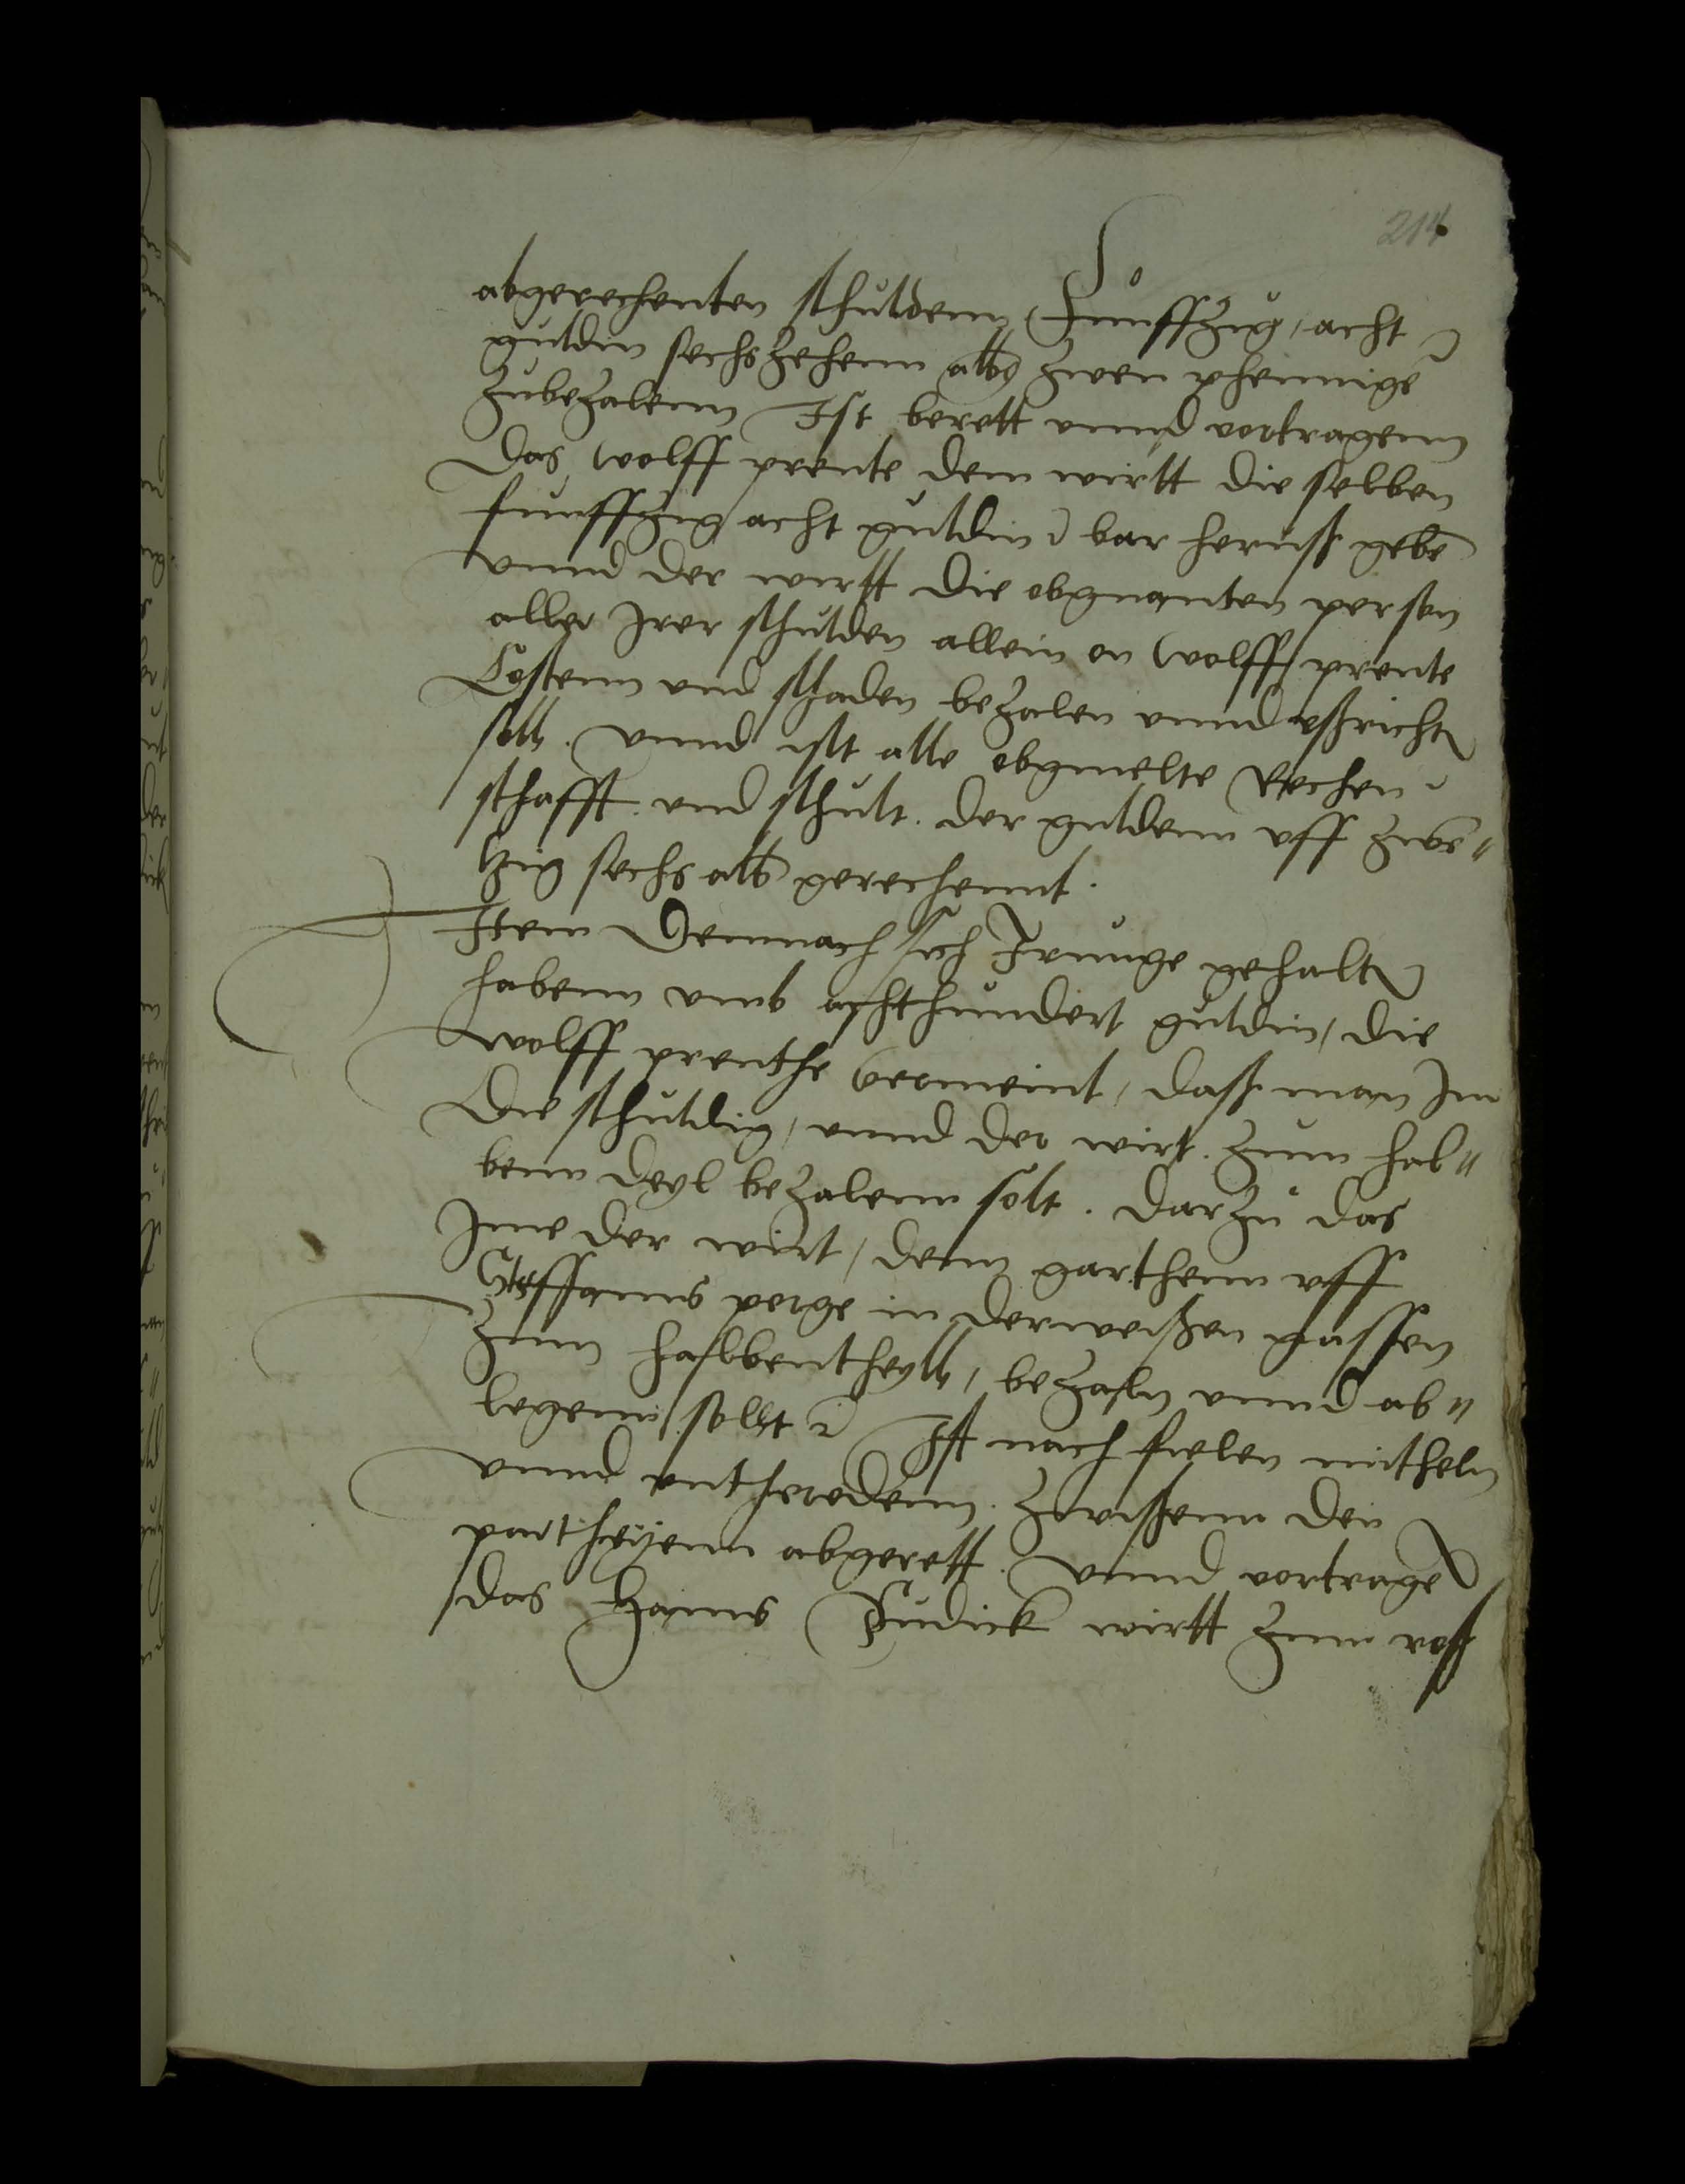 abgerechenten schuldenn Funffzig, acht
guldin sechszehenn alb zwen pfennig
zubezalenn Ist berett vnnd vertragenn
Das wolff prente dem wirtt die selben
funffzig acht guldin bar heruß gebe
vnnd der wirtt die obgenanten person
aller Irer schulden allein on wolff prente
Costenn vnd schaden bezalen vnnd vßricht
soll. vnnd ist alle obgemelte Rechen
schafft vnd schult. der guldenn vff zwe
zig sechs alb gerechennt.
Item Demnach sich Irrunge gehalt
habenn vmb achthundert guldin, die
wolff prenthe vermeint, das man Im
Die schuldig, vnnd der wirt. zum hal
benn deyl bezalenn solt. Darzu das
Ime der wirt, den garthenn vff
Steffans berge in der gassen
zum halbentheyl, bezaln vnnd ab
legenn solt. Ist nach vielen
vnnd vnderredenn. zwischenn den
partheyenn abgerett. vnnd vertrage
das Hans wirtt zum
214